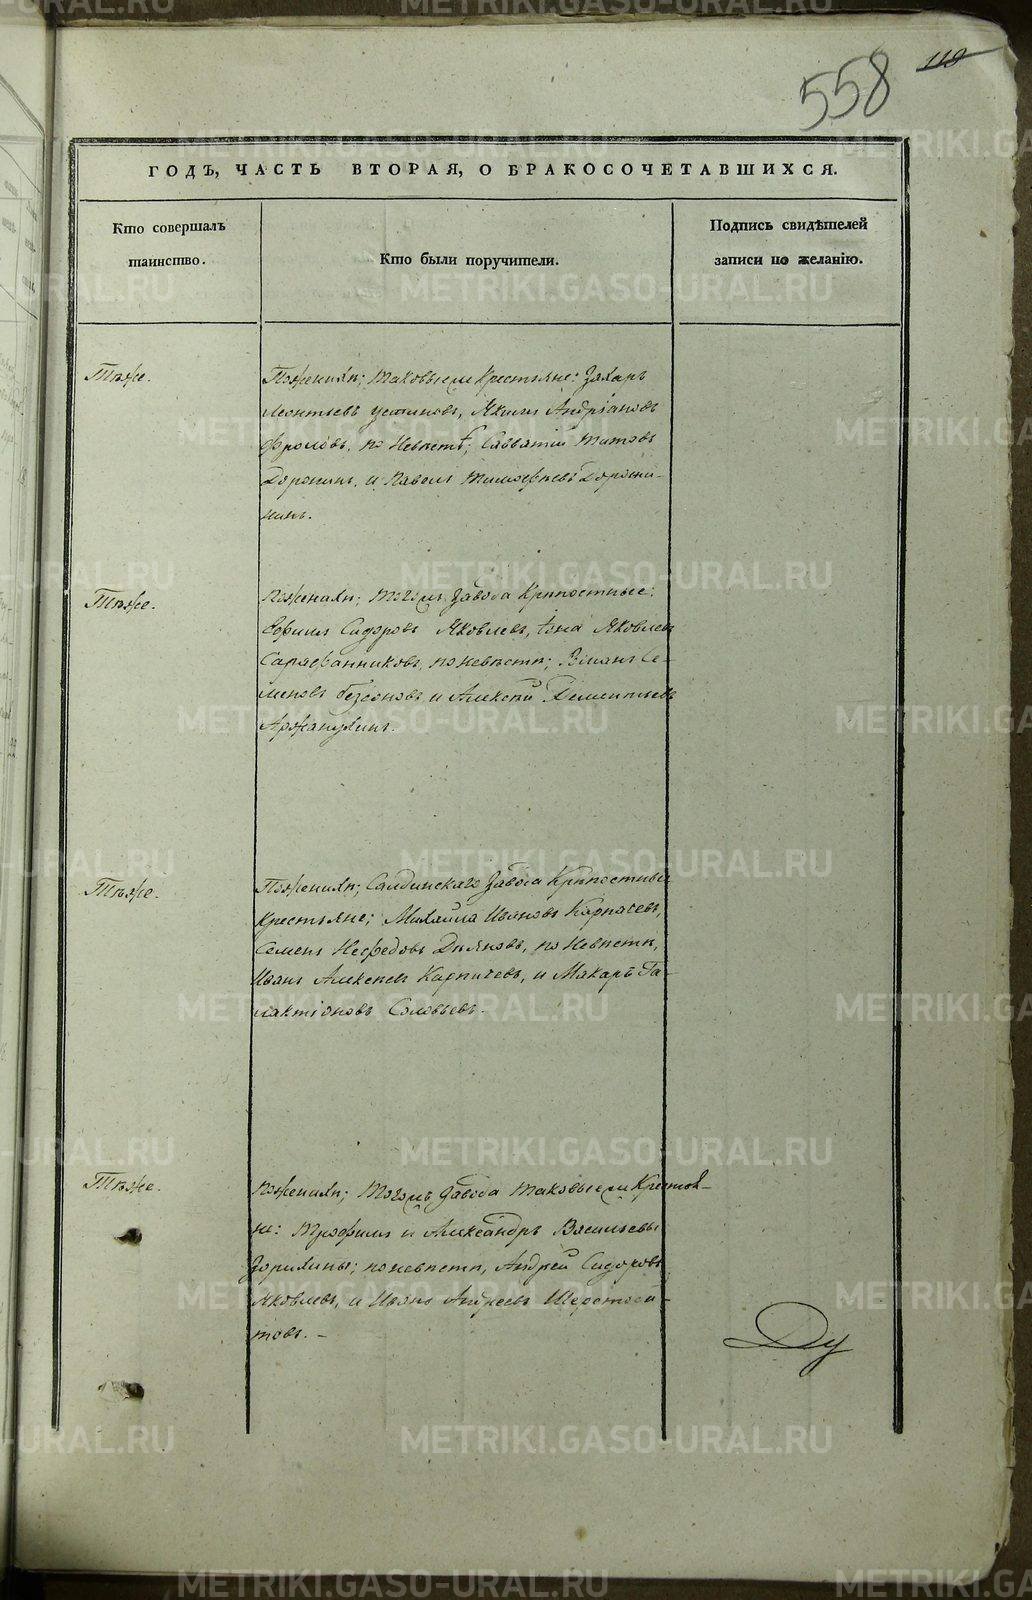 558
110
ГОДЪ, ЧАСТЬ ВТОРАЯ, О БРАКОСОЧЕТАВШИХСЯ.
Кто совершалъ таинство.
Кто были поручители.
Подпись свидѣтелей записи по желанію.
Тѣже.
По женихѣ; таковыеже крестьяне: Захаръ
Леонтьевъ Устиновъ, Якимъ Андріановъ
Фроловъ, по невѣстѣ; Савватій Титовъ
Доронинъ, и Павелъ Тимофѣевъ Дорони-
нинъ.
Тѣже.
По женихѣ; тогожъ завода крѣпостные:
Ефимъ Сидоровъ Яковлевъ, Яковлевъ
Сарафанниковъ, по невѣстѣ; Се-
меновъ Безсоновъ, и Алексѣй Дементьевъ
Аржанухинъ.
Тѣже.
По женихѣ; Салдинскаго завода крѣпостные
крестьяне; Михайла Ивановъ Карпачевъ,
Семенъ Нефедовъ Дьяковъ, по невѣстѣ,
Иванъ Алексѣевъ Карпичевъ, и Макаръ Га-
лактіоновъ Соловьевъ.
Тѣже.
По женихѣ; тогожъ завода таковыеже крестья-
не: Трофимъ и Александръ Васильевы
Зорихины; по невѣстѣ, Андрей Сидоровъ
Яковлевъ, и Иванъ Андреевъ Шерстоби-
товъ. –
Ду
METRIKI.GASO-URAL.RU